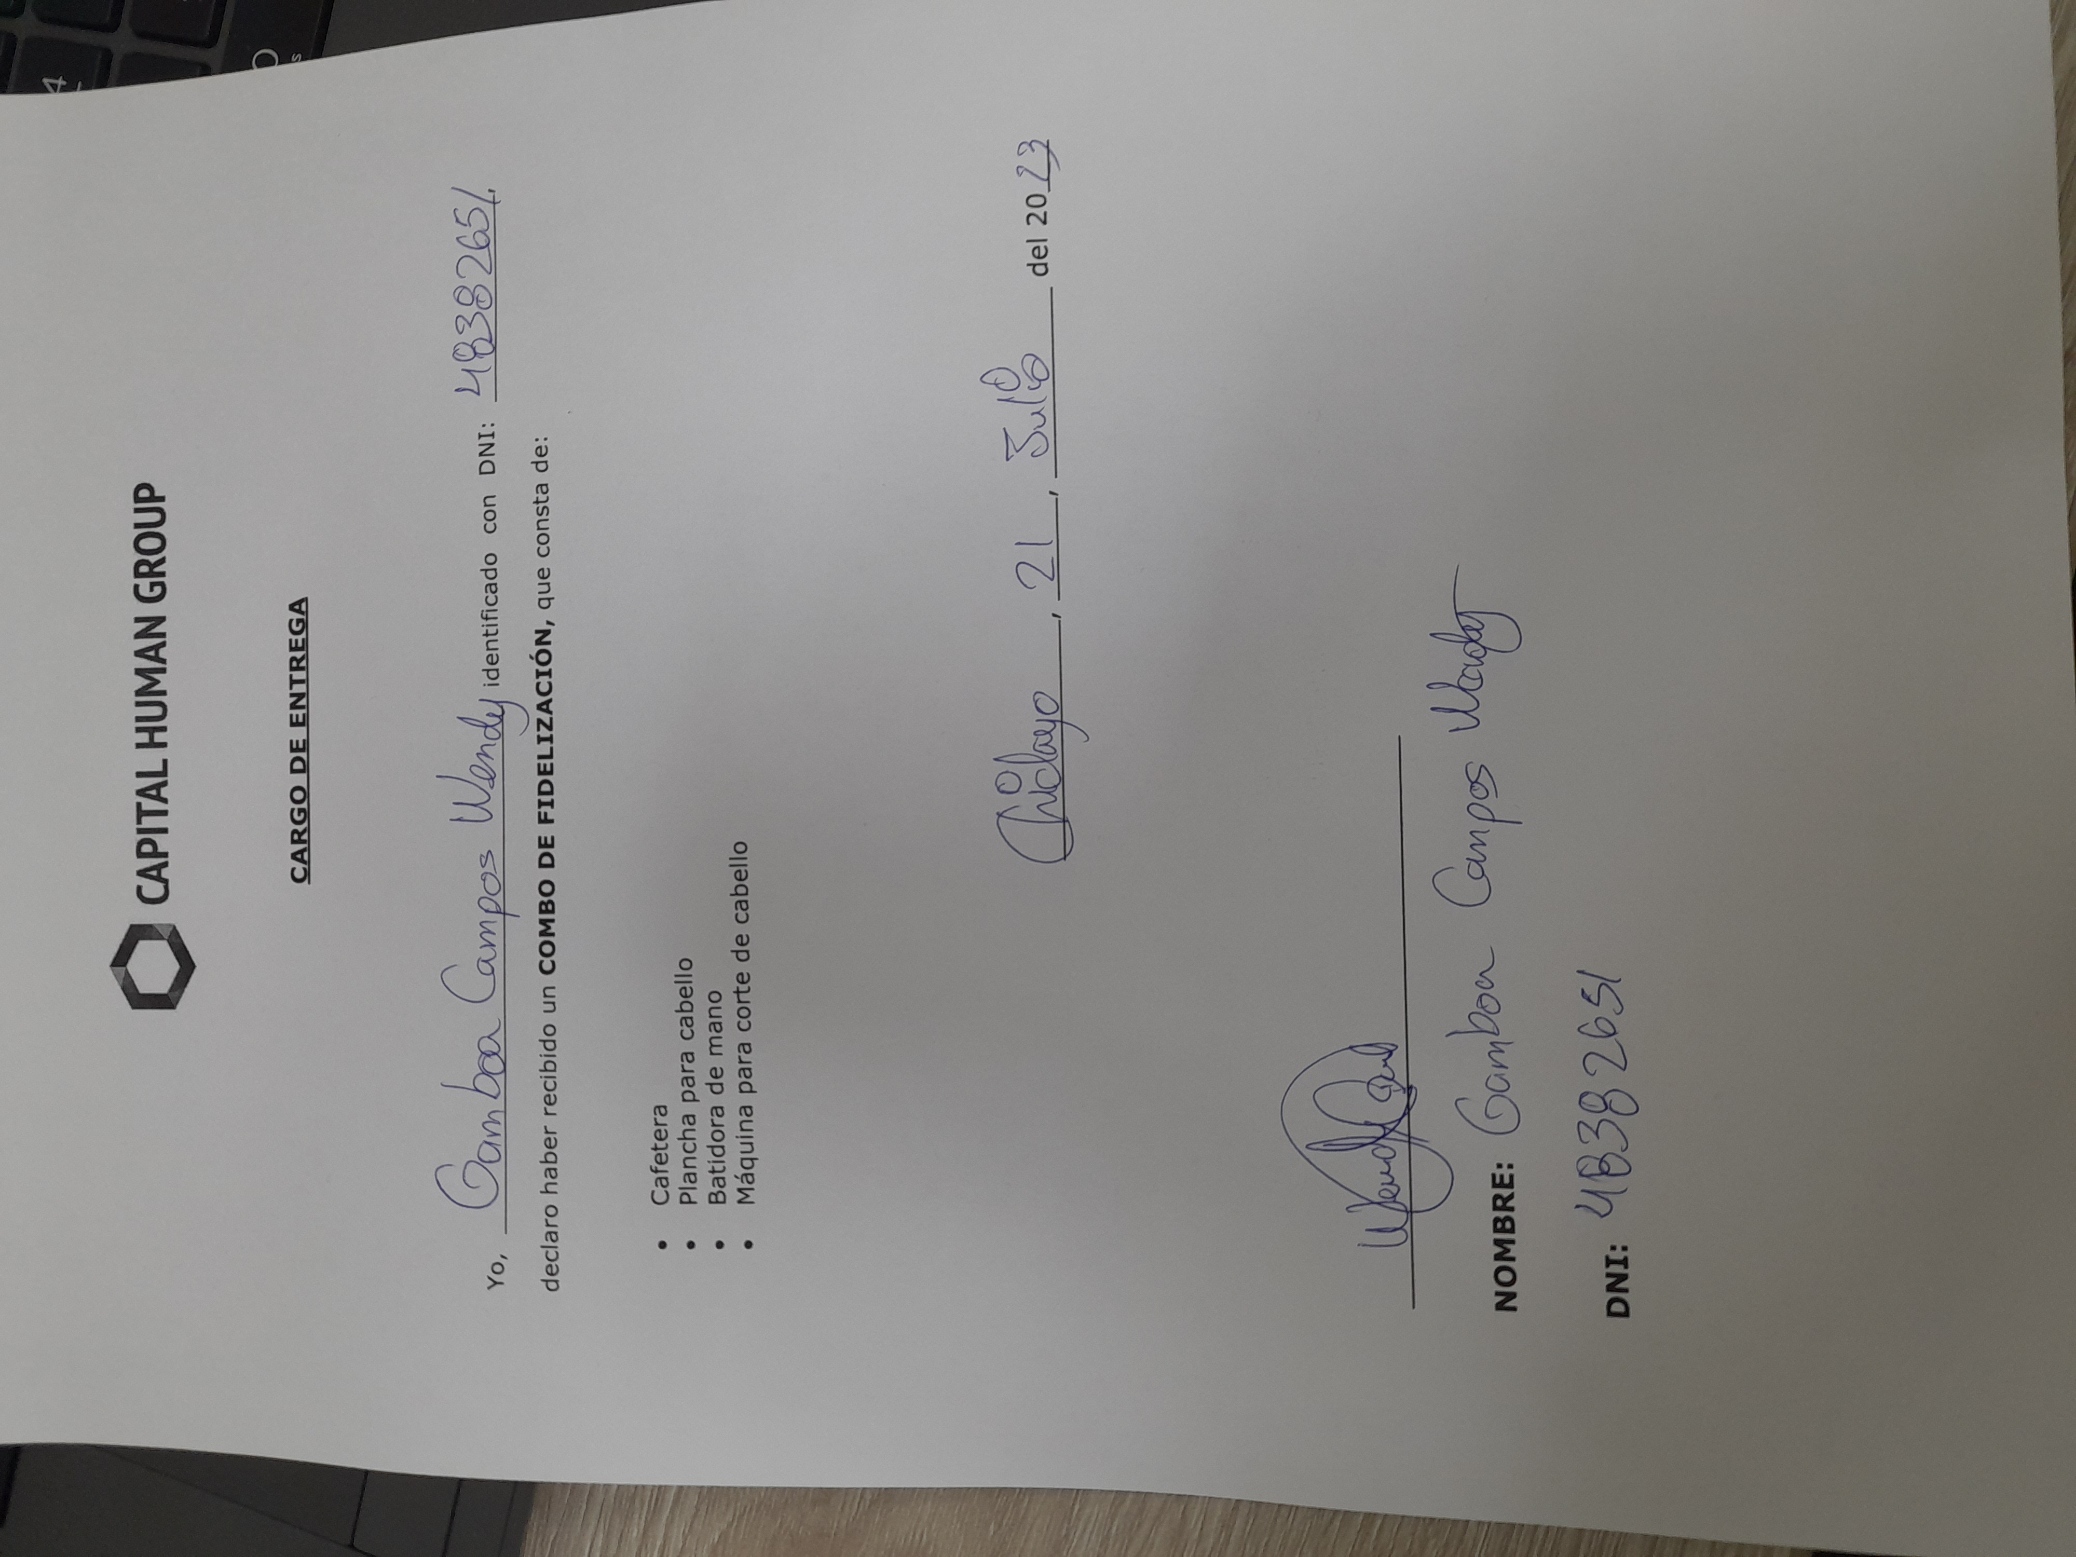 CAPITAL HUMAN GROUP
CARGO DE ENTREGA
Yo, Gamboa Campos Wendy identificado con DNI: 48382651.
declaro haber recibido un COMBO DE FIDELIZACIÓN, que consta de:
• Cafetera
• Plancha para cabello
• Batidora de mano
• Máquina para corte de cabello
Chiclayo, 21, Julio del 2023
Wendy
NOMBRE: Gamboa Campos Wendy
DNI: 48382651